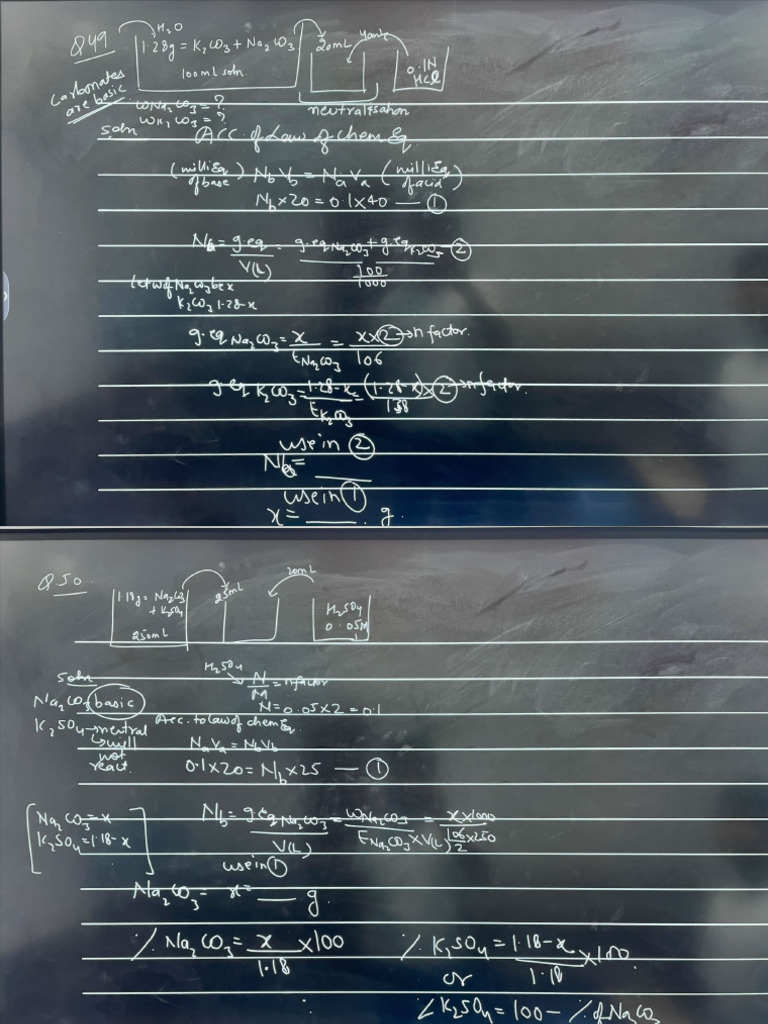 Q49
H2O
1.28g = K2CO3 + Na2CO3
100ml soln
20mL
40mL
0.1N
HCl
neutralisation
Carbonates
are basic
WNa2CO3 = ?
WK2CO3 = ?
soln
Acc. of Law of chem Eq
(milliEq of base) NbVb = NaVa (milliEq of acid)
Nb×20 = 0.1×40 — ①
Nb = g.eq / V(L) = g.eq Na2CO3 + g.eq K2CO3 / 100/1000 — ②
let w of Na2CO3 be x
K2CO3 1.28-x
g.eq Na2CO3 = x / ENa2CO3 = x×② / 106 → n factor.
g.eq K2CO3 = 1.28-x / EK2CO3 = (1.28-x)×② / 138 → n factor.
use in ②
Nb = ___
use in ①
x = ___ g.
Q50
1.18g = Na2CO3
+ K2SO4
250ml
25mL
20mL
H2SO4
0.05M
soln
H2SO4
N/M = n factor
Na2CO3 basic
N = 0.05×2 = 0.1
K2SO4 → neutral
↳ will
not
react.
Acc. to law of chem Eq.
NaVa = NbVb
0.1×20 = Nb×25 — ①
[Na2CO3 = x
K2SO4 = 1.18-x]
Nb = g.eq Na2CO3 / V(L) = WNa2CO3 / ENa2CO3 × V(L) = x×1000 / 106/2 × 250
use in ①
Na2CO3 = x = ___ g
% Na2CO3 = x / 1.18 ×100
% K2SO4 = 1.18-x / 1.18 ×100
or
% K2SO4 = 100 - % of Na2CO3